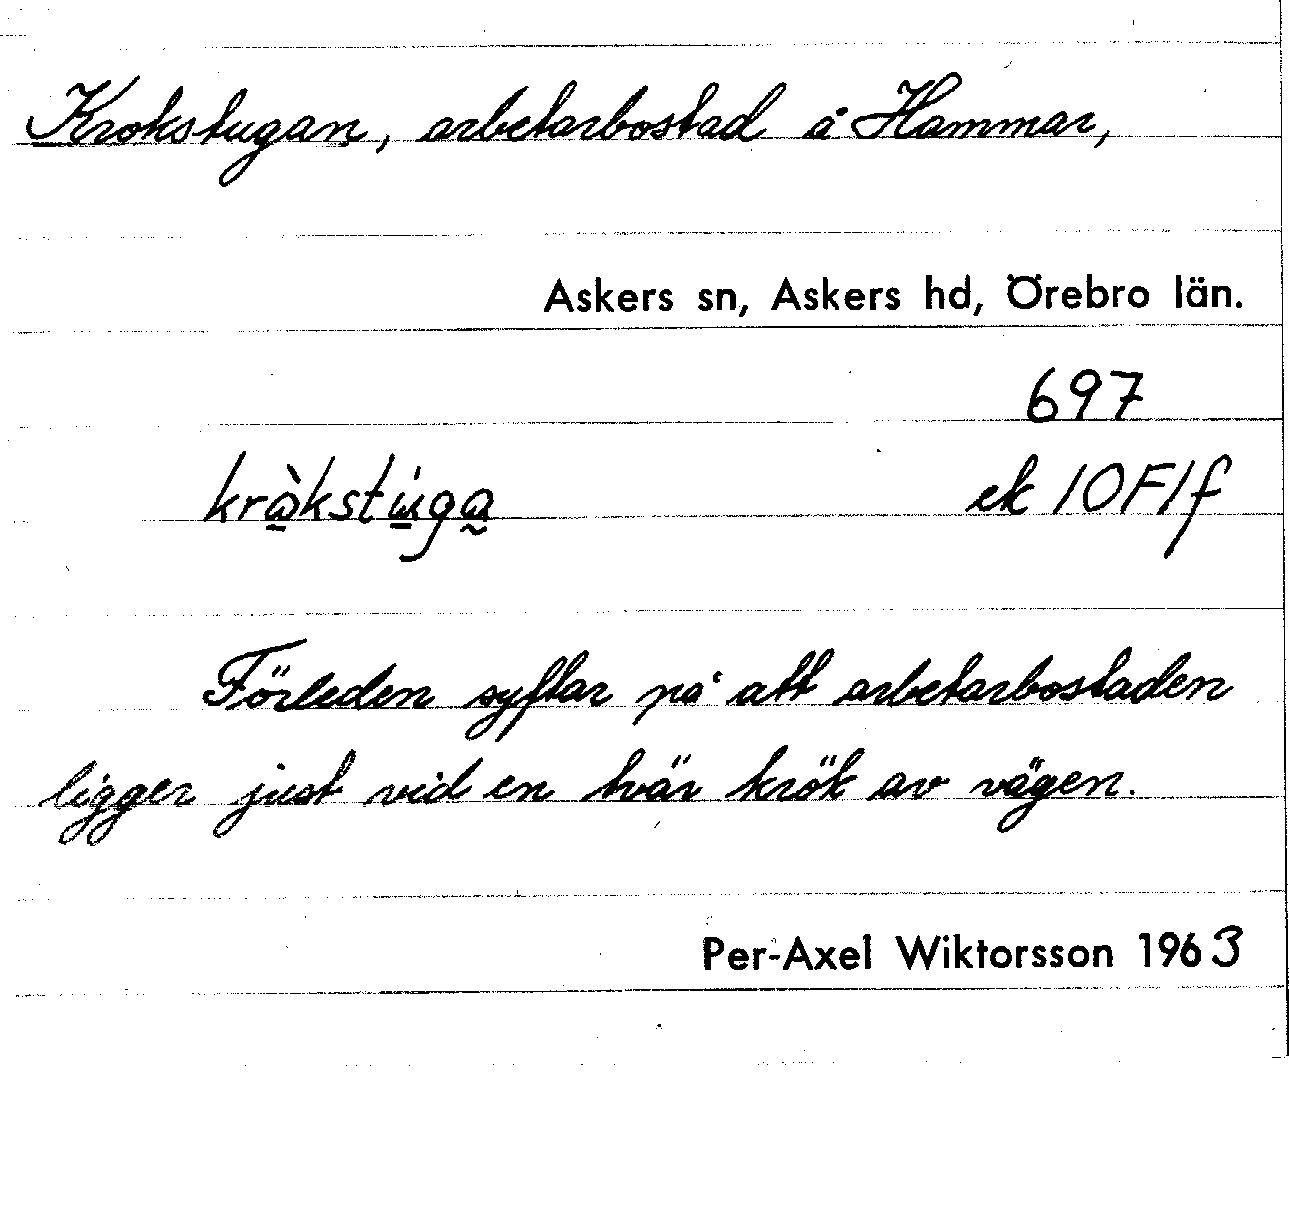 Krokstugan, arbetarbostad å Hammar,
Askers sn, Askers hd, Örebro län.
697
kràkstúga ek 10F1f
Förleden syftar på att arbetarbostaden
ligger just vid en tvär krök av vägen.
Per-Axel Wiktorsson 1963